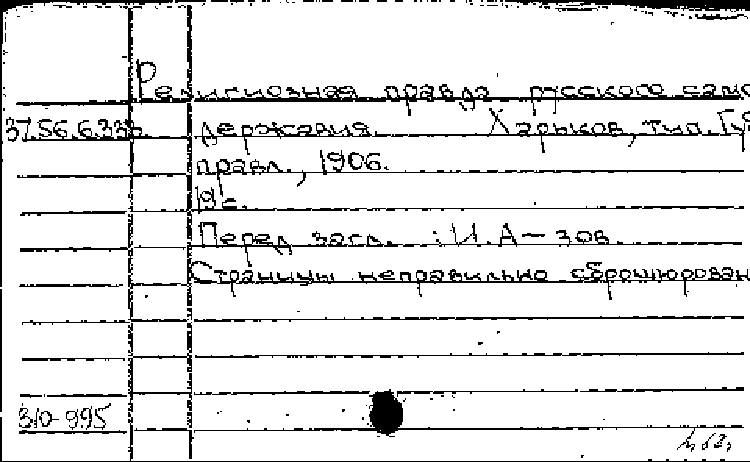 Религиозная правда русского само
37.56.6.335 державия. Харьков, тип. Губ
правл., 1906.
19 с.
Перед загл.: И. А-зов.
Страницы неправильно сброшюрован
310-995